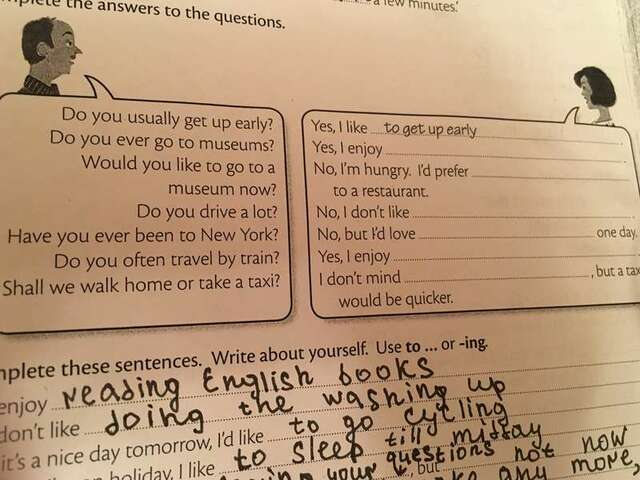 the answers to the questions.
a few minutes.'
Do you usually get up early?
Do you ever go to museums?
Would you like to go to a
museum now?
Do you drive a lot?
Have you ever been to New York?
Do you often travel by train?
Shall we walk home or take a taxi?
Yes, I like to get up early .
Yes, I enjoy .
No, I'm hungry. I'd prefer
to a restaurant.
No, I don't like .
No, but I'd love one day.
Yes, I enjoy .
I don't mind , but a tax
would be quicker.
mplete these sentences. Write about yourself. Use to ... or -ing.
enjoy reading English books
don't like doing the washing up
it's a nice day tomorrow, I'd like to go cycling
holiday, I like to sleep till midday
your questions not now
, but any more,